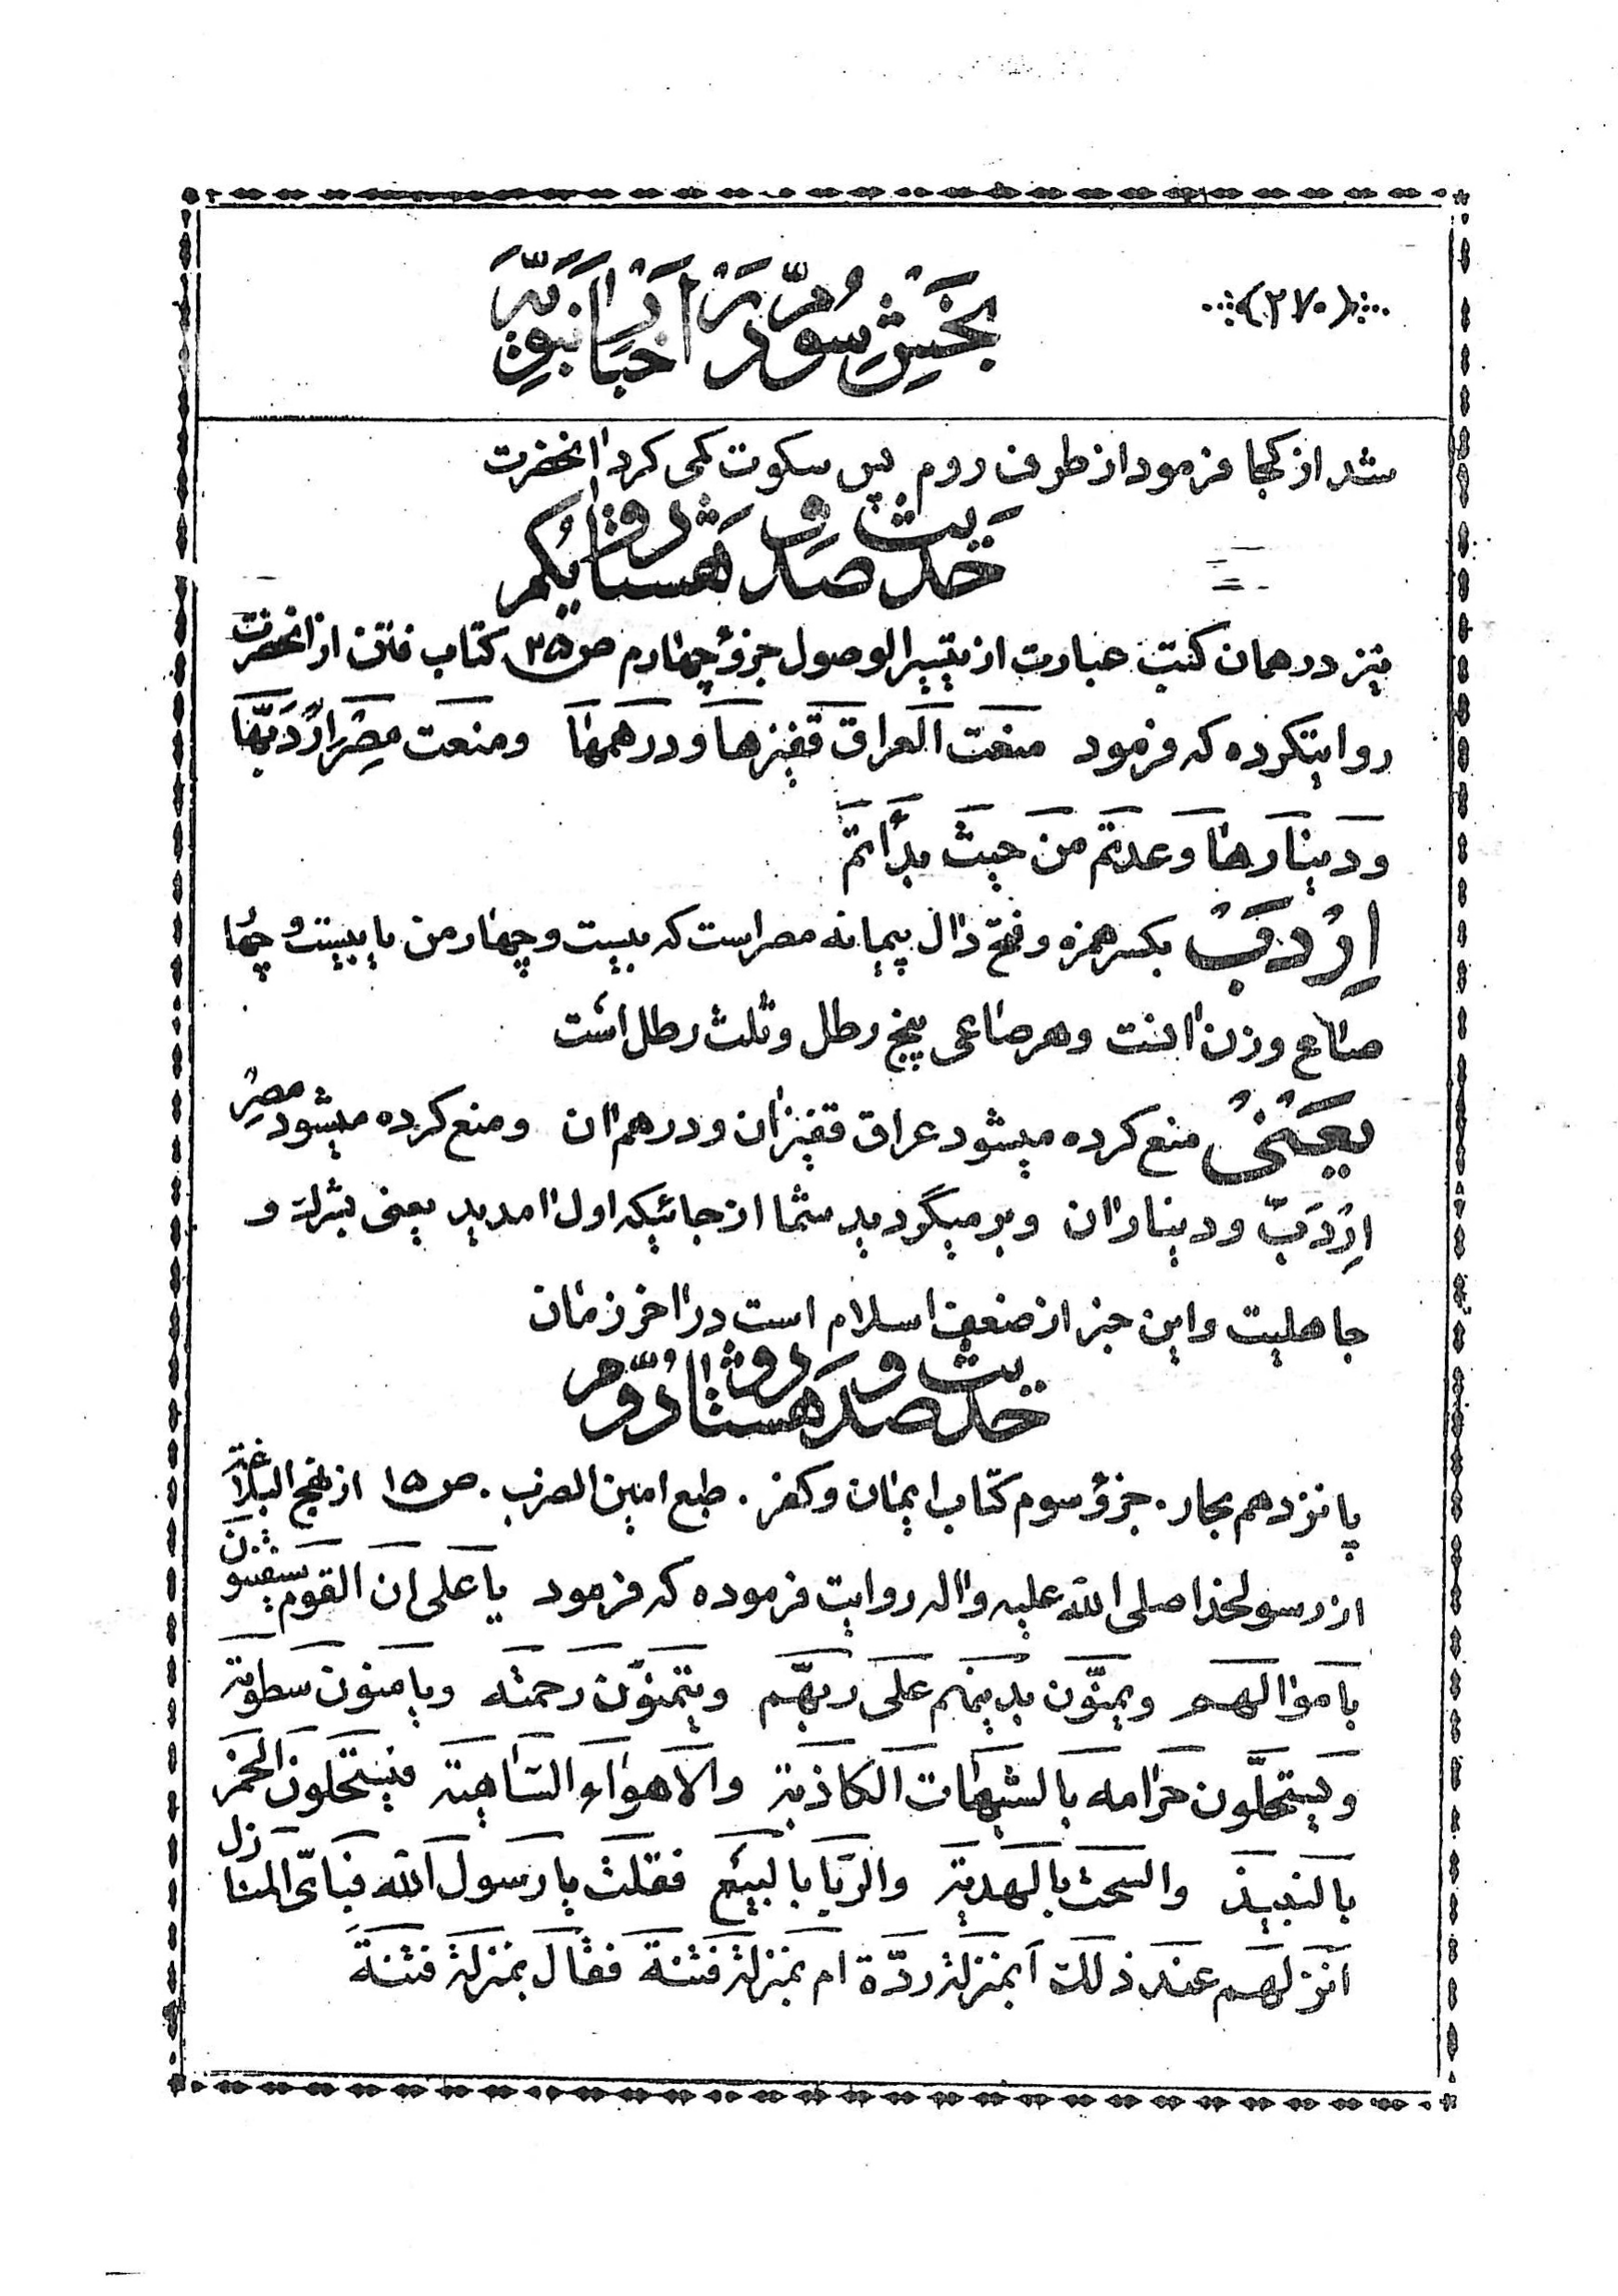 (۲۷۰)
بخش سوّم در اخبار نبویّه
شد از کجا فرمود از طرف روم پس سکوت کمی کرد آنحضرت
حدیث صد و هشتاد و یکم
نیز در همان کتب عبارت از تیسیر الوصول جزؤ چهارم ص ۲۵ کتاب فتن از آنحضرت
روایتکرده که فرمود منعت العراق قفیزها و درهمها ومنعت مصر اردبّها
ودینارها وعدتم من حیث بدأتم
اِرْدَبّ بکسر همزه و فتح دال پیمانه مصر است که بیست و چهار من یا بیست و چهار
صاع وزن آنست وهر صاعی پنج رطل و ثلث رطل است
یعنی منع کرده میشود عراق قفیز آن و درهم آن ومنع کرده میشود مصر
اِرْدَبّ و دینار آن و بر میگردید شما از جائیکه اول آمدید یعنی بشرک و
جاهلیت واین خبر از ضعف اسلام است در آخر زمان
حدیث صد و هشتاد و دوّم
پانزدهم بحار. جزؤ سوم کتاب ایمان و کفر. طبع امین الضرب. ص ۱۵ از نهج البلاغة
از رسولخدا صلی الله علیه و آله روایت فرموده که فرمود یا علی ان القوم سیفتنون
باموالهم ویمنّون بدینهم علی ربّهم ویتمنّون رحمته ویامنون سطوته
ویستحلّون حرامه بالشبهات الکاذبة والاهواء السّاهیة فیستحلون الخمر
بالنبیذ والسحت بالهدیة والرّبا بالبیع فقلت یا رسول الله فبایّ المنازل
انزلهم عند ذلک أبمنزلة ردّة ام بمنزلة فتنة فقال بمنزلة فتنة